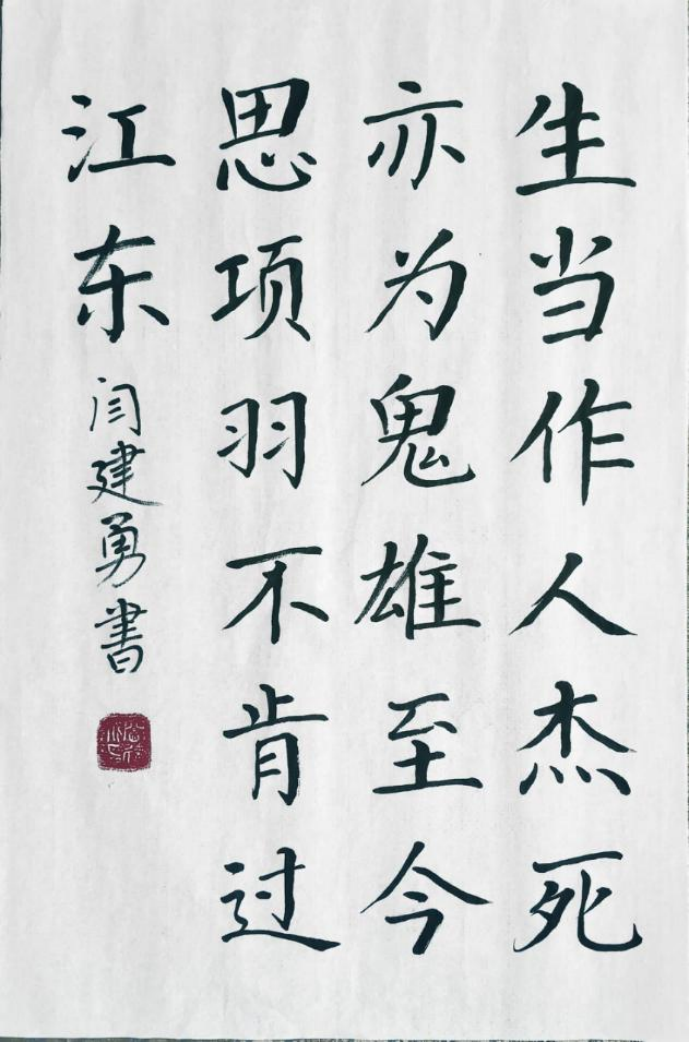 生当作人杰死
亦为鬼雄至今
思项羽不肯过
江东
闫建勇書